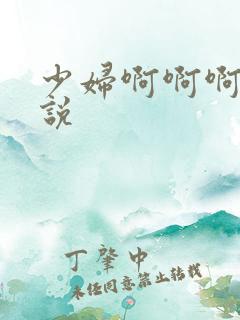 少婦啊啊啊
說
丁肇中
未经同意禁止转载